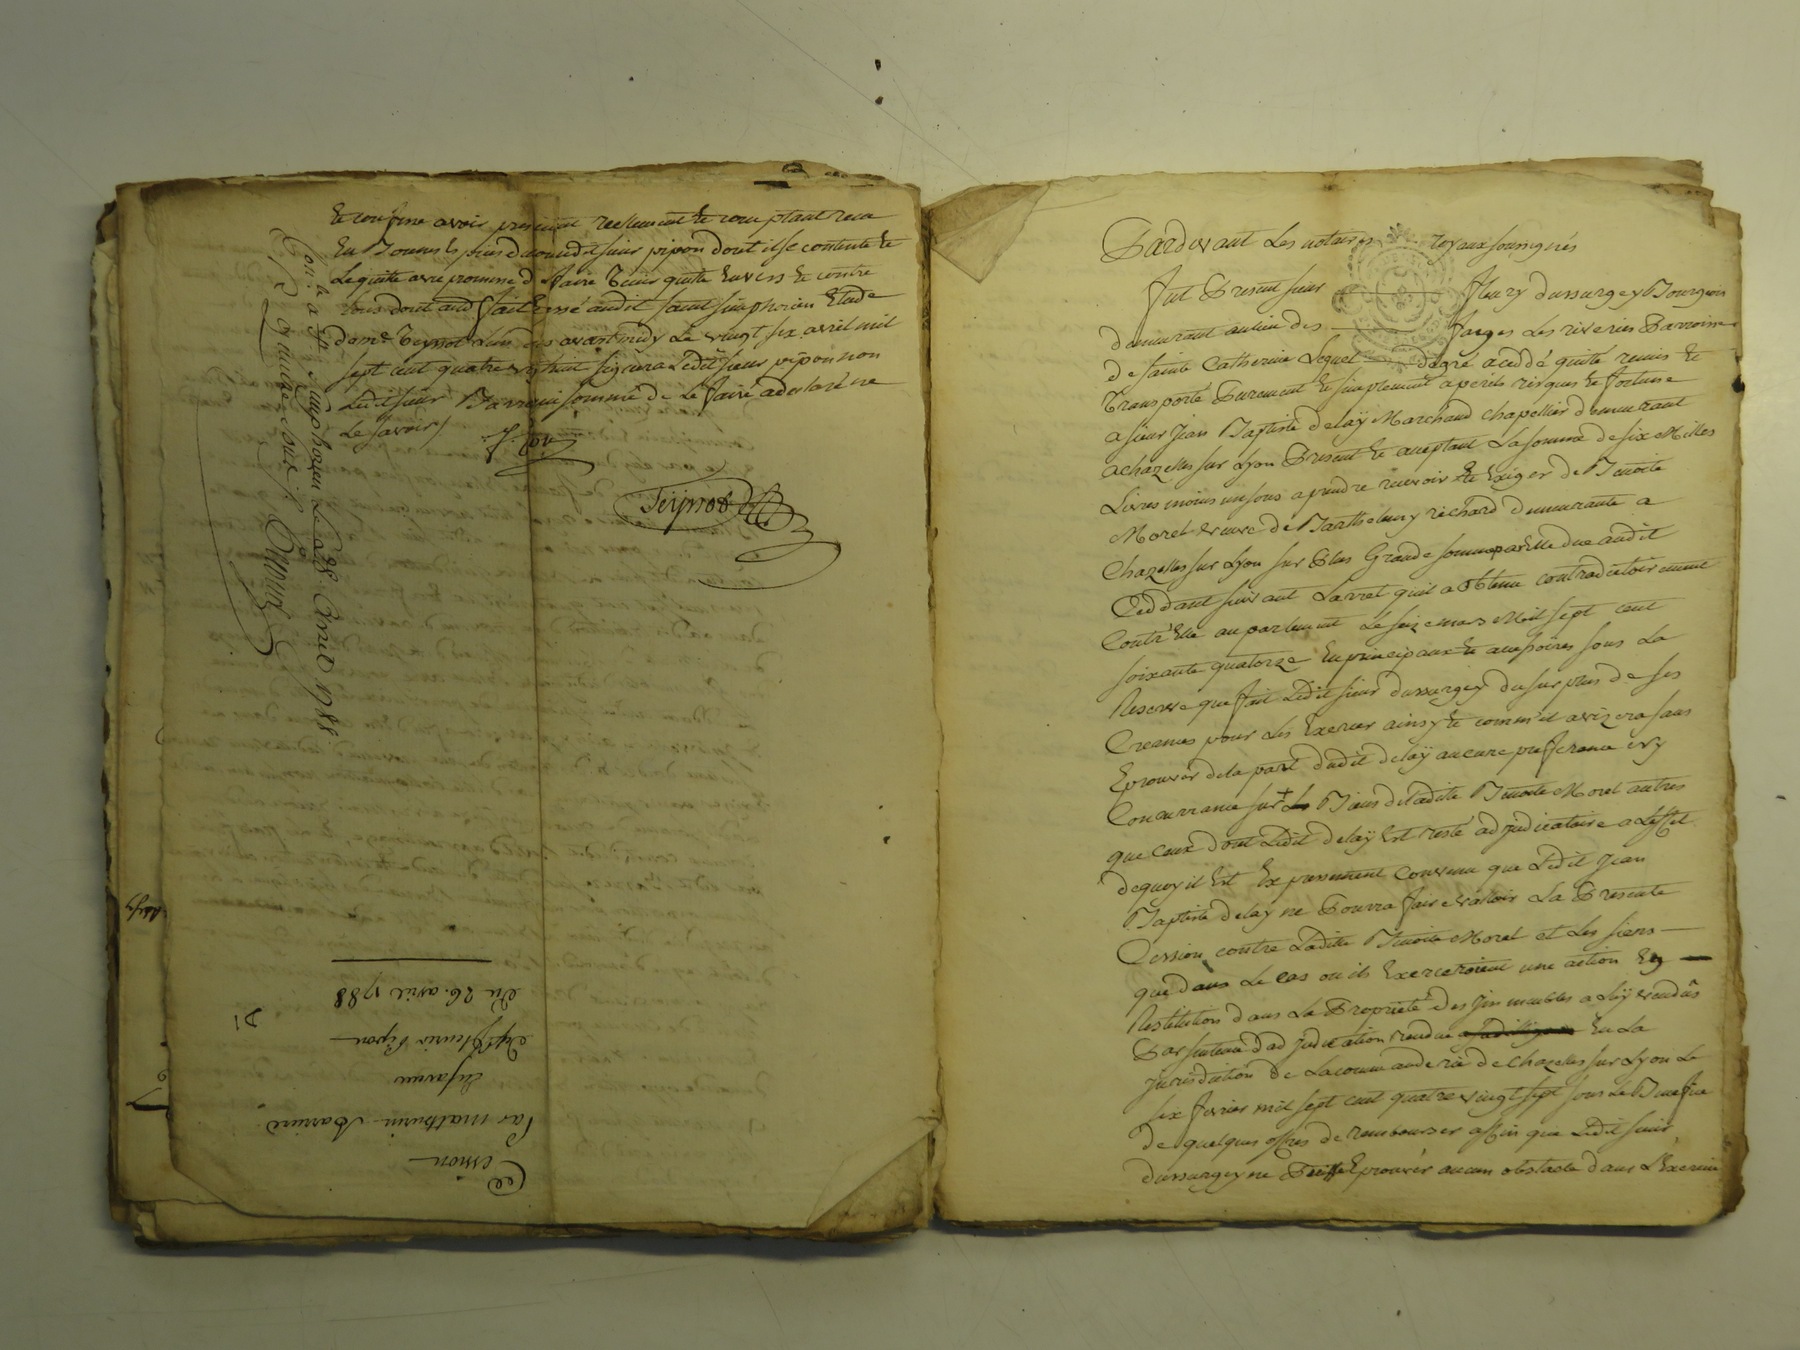 Et confesse avoir presentement reellement Et comptant recu
En Bonnes Especes dud sieur pipon dont il se contente Et
Le quitte avec promesse d faire tenir quitte Envers Et contre
tous dont acte fait Et passé audit saint simphorien Etude
dome teynot L'un des avant midy Le vingt six avril mil
sept cent quatre vingt huit signera Ledit sieur pipon non
Ledit sieur Barroin sommé de Le faire a declaré ne
Le savoir
Pipon
Teynot
Con.lé a St. simphorien Le 28. avril 1788.
Cession
Par mathurin Barrind
En faveur
De fleurie Pipon
Du 26. avril 1788
Pardevant Les notaires royaux soussignés
fut Present sieur fleury dussurgey Bourgeois
demeurant au lieu des farges Les riveries Parroisse
de sainte Catherine Lequel degré a ceddé quité remis Et
transporté Purement Et simplement a perils risques Et fortune
a sieur Jean Baptiste delaÿ Marchand chapellier demeurant
a chazelles sur Lyon Present Et acceptant La somme de six Milles
Livres moins un sous a prendre recevoir Et Exiger de Benoite
Morel veuve de Barthelemy richard demeurante a
Chazelles sur Lyon sur Plus Grande somme a Elle due audit
Ceddant suivant Larret quil a obtenu contradictoirement
Contr'Elle au parlement Le seize mars Mil sept cent
soixante quatorze En principaux Et accessoires sous La
Reserve que fait Ledit sieur dussurgey du surplus de ses
Creances pour Les Exercer ainsy Et comm'il avizera sans
Eprouver de la part dudit delaÿ aucune preference ny
Concurrance sur + Les Biens de ladite Benoite Morel autres
que ceux dont Ledit delaÿ Est resté adjudicataire a Leffet
dequoy il Est Expressement Convenu que Ledit Jean
Baptiste delay ne Pourra faire valloir La Presente
Cession contre Ladite Benoite Morel et Les siens
que dans Le cas ou ils Exerceroient une action En
Restitution dans La Proprieté des Jmmeubles a Luy vendus
Par sentence d'adjudication rendue En La
jurisdiction de La commanderie de chazelles sur Lyon Le
six fevrier mil sept cent quatre vingt sept sous Le Benefice
de quelques offres de rembourser affin que Ledit sieur
dussurgey ne Puisse Eprouver aucun obstacle dans L'Exercice